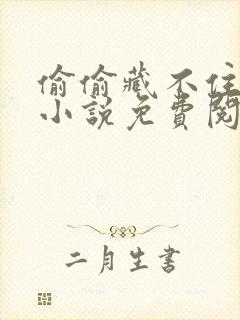 偷偷藏不住
小説免費閱
二月生書